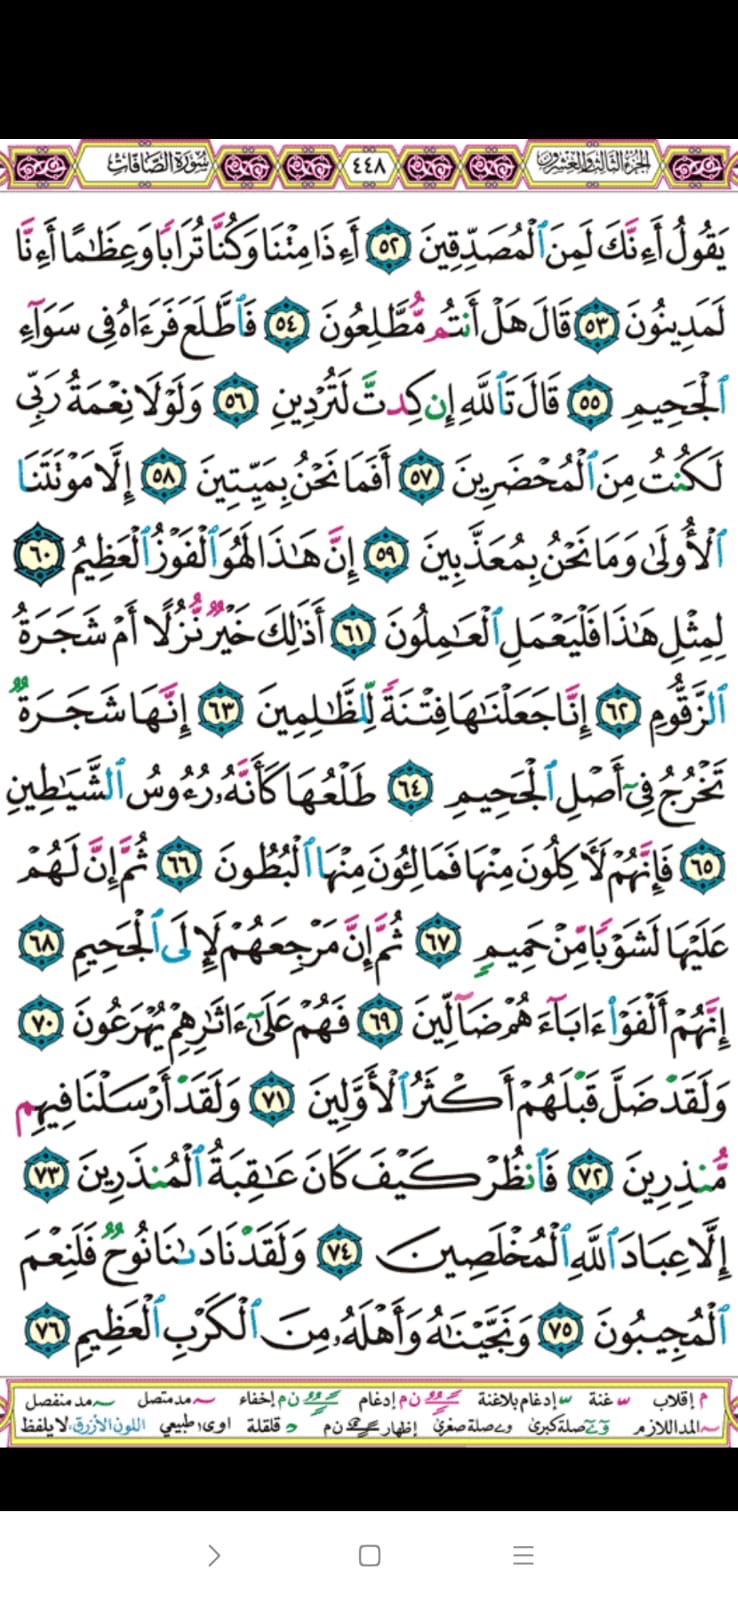 الجزء الثالث والعشرون ٤٤٨ سورة الصافات
يَقُولُ أَءِنَّكَ لَمِنَ ٱلْمُصَدِّقِينَ ٥٢ أَءِذَا مِتْنَا وَكُنَّا تُرَابًا وَعِظَٰمًا أَءِنَّا
لَمَدِينُونَ ٥٣ قَالَ هَلْ أَنتُم مُّطَّلِعُونَ ٥٤ فَٱطَّلَعَ فَرَءَاهُ فِى سَوَآءِ
ٱلْجَحِيمِ ٥٥ قَالَ تَٱللَّهِ إِن كِدتَّ لَتُرْدِينِ ٥٦ وَلَوْلَا نِعْمَةُ رَبِّى
لَكُنتُ مِنَ ٱلْمُحْضَرِينَ ٥٧ أَفَمَا نَحْنُ بِمَيِّتِينَ ٥٨ إِلَّا مَوْتَتَنَا
ٱلْأُولَىٰ وَمَا نَحْنُ بِمُعَذَّبِينَ ٥٩ إِنَّ هَٰذَا لَهُوَ ٱلْفَوْزُ ٱلْعَظِيمُ ٦٠
لِمِثْلِ هَٰذَا فَلْيَعْمَلِ ٱلْعَٰمِلُونَ ٦١ أَذَٰلِكَ خَيْرٌ نُّزُلًا أَمْ شَجَرَةُ
ٱلزَّقُّومِ ٦٢ إِنَّا جَعَلْنَٰهَا فِتْنَةً لِّلظَّٰلِمِينَ ٦٣ إِنَّهَا شَجَرَةٌ
تَخْرُجُ فِىٓ أَصْلِ ٱلْجَحِيمِ ٦٤ طَلْعُهَا كَأَنَّهُۥ رُءُوسُ ٱلشَّيَٰطِينِ
٦٥ فَإِنَّهُمْ لَءَاكِلُونَ مِنْهَا فَمَالِـُٔونَ مِنْهَا ٱلْبُطُونَ ٦٦ ثُمَّ إِنَّ لَهُمْ
عَلَيْهَا لَشَوْبًا مِّنْ حَمِيمٍ ٦٧ ثُمَّ إِنَّ مَرْجِعَهُمْ لَإِلَى ٱلْجَحِيمِ ٦٨
إِنَّهُمْ أَلْفَوْا۟ ءَابَآءَهُمْ ضَآلِّينَ ٦٩ فَهُمْ عَلَىٰٓ ءَاثَٰرِهِمْ يُهْرَعُونَ ٧٠
وَلَقَدْ ضَلَّ قَبْلَهُمْ أَكْثَرُ ٱلْأَوَّلِينَ ٧١ وَلَقَدْ أَرْسَلْنَا فِيهِم
مُّنذِرِينَ ٧٢ فَٱنظُرْ كَيْفَ كَانَ عَٰقِبَةُ ٱلْمُنذَرِينَ ٧٣
إِلَّا عِبَادَ ٱللَّهِ ٱلْمُخْلَصِينَ ٧٤ وَلَقَدْ نَادَىٰنَا نُوحٌ فَلَنِعْمَ
ٱلْمُجِيبُونَ ٧٥ وَنَجَّيْنَٰهُ وَأَهْلَهُۥ مِنَ ٱلْكَرْبِ ٱلْعَظِيمِ ٧٦
م إقلاب غنة إدغام بلاغنة ن م إدغام ن م إخفاء مد متصل مد منفصل
المد اللازم صلة كبرى صلة صغرى إظهار ن م قلقلة اوى طبيعي اللون الأزرق: لا يلفظ